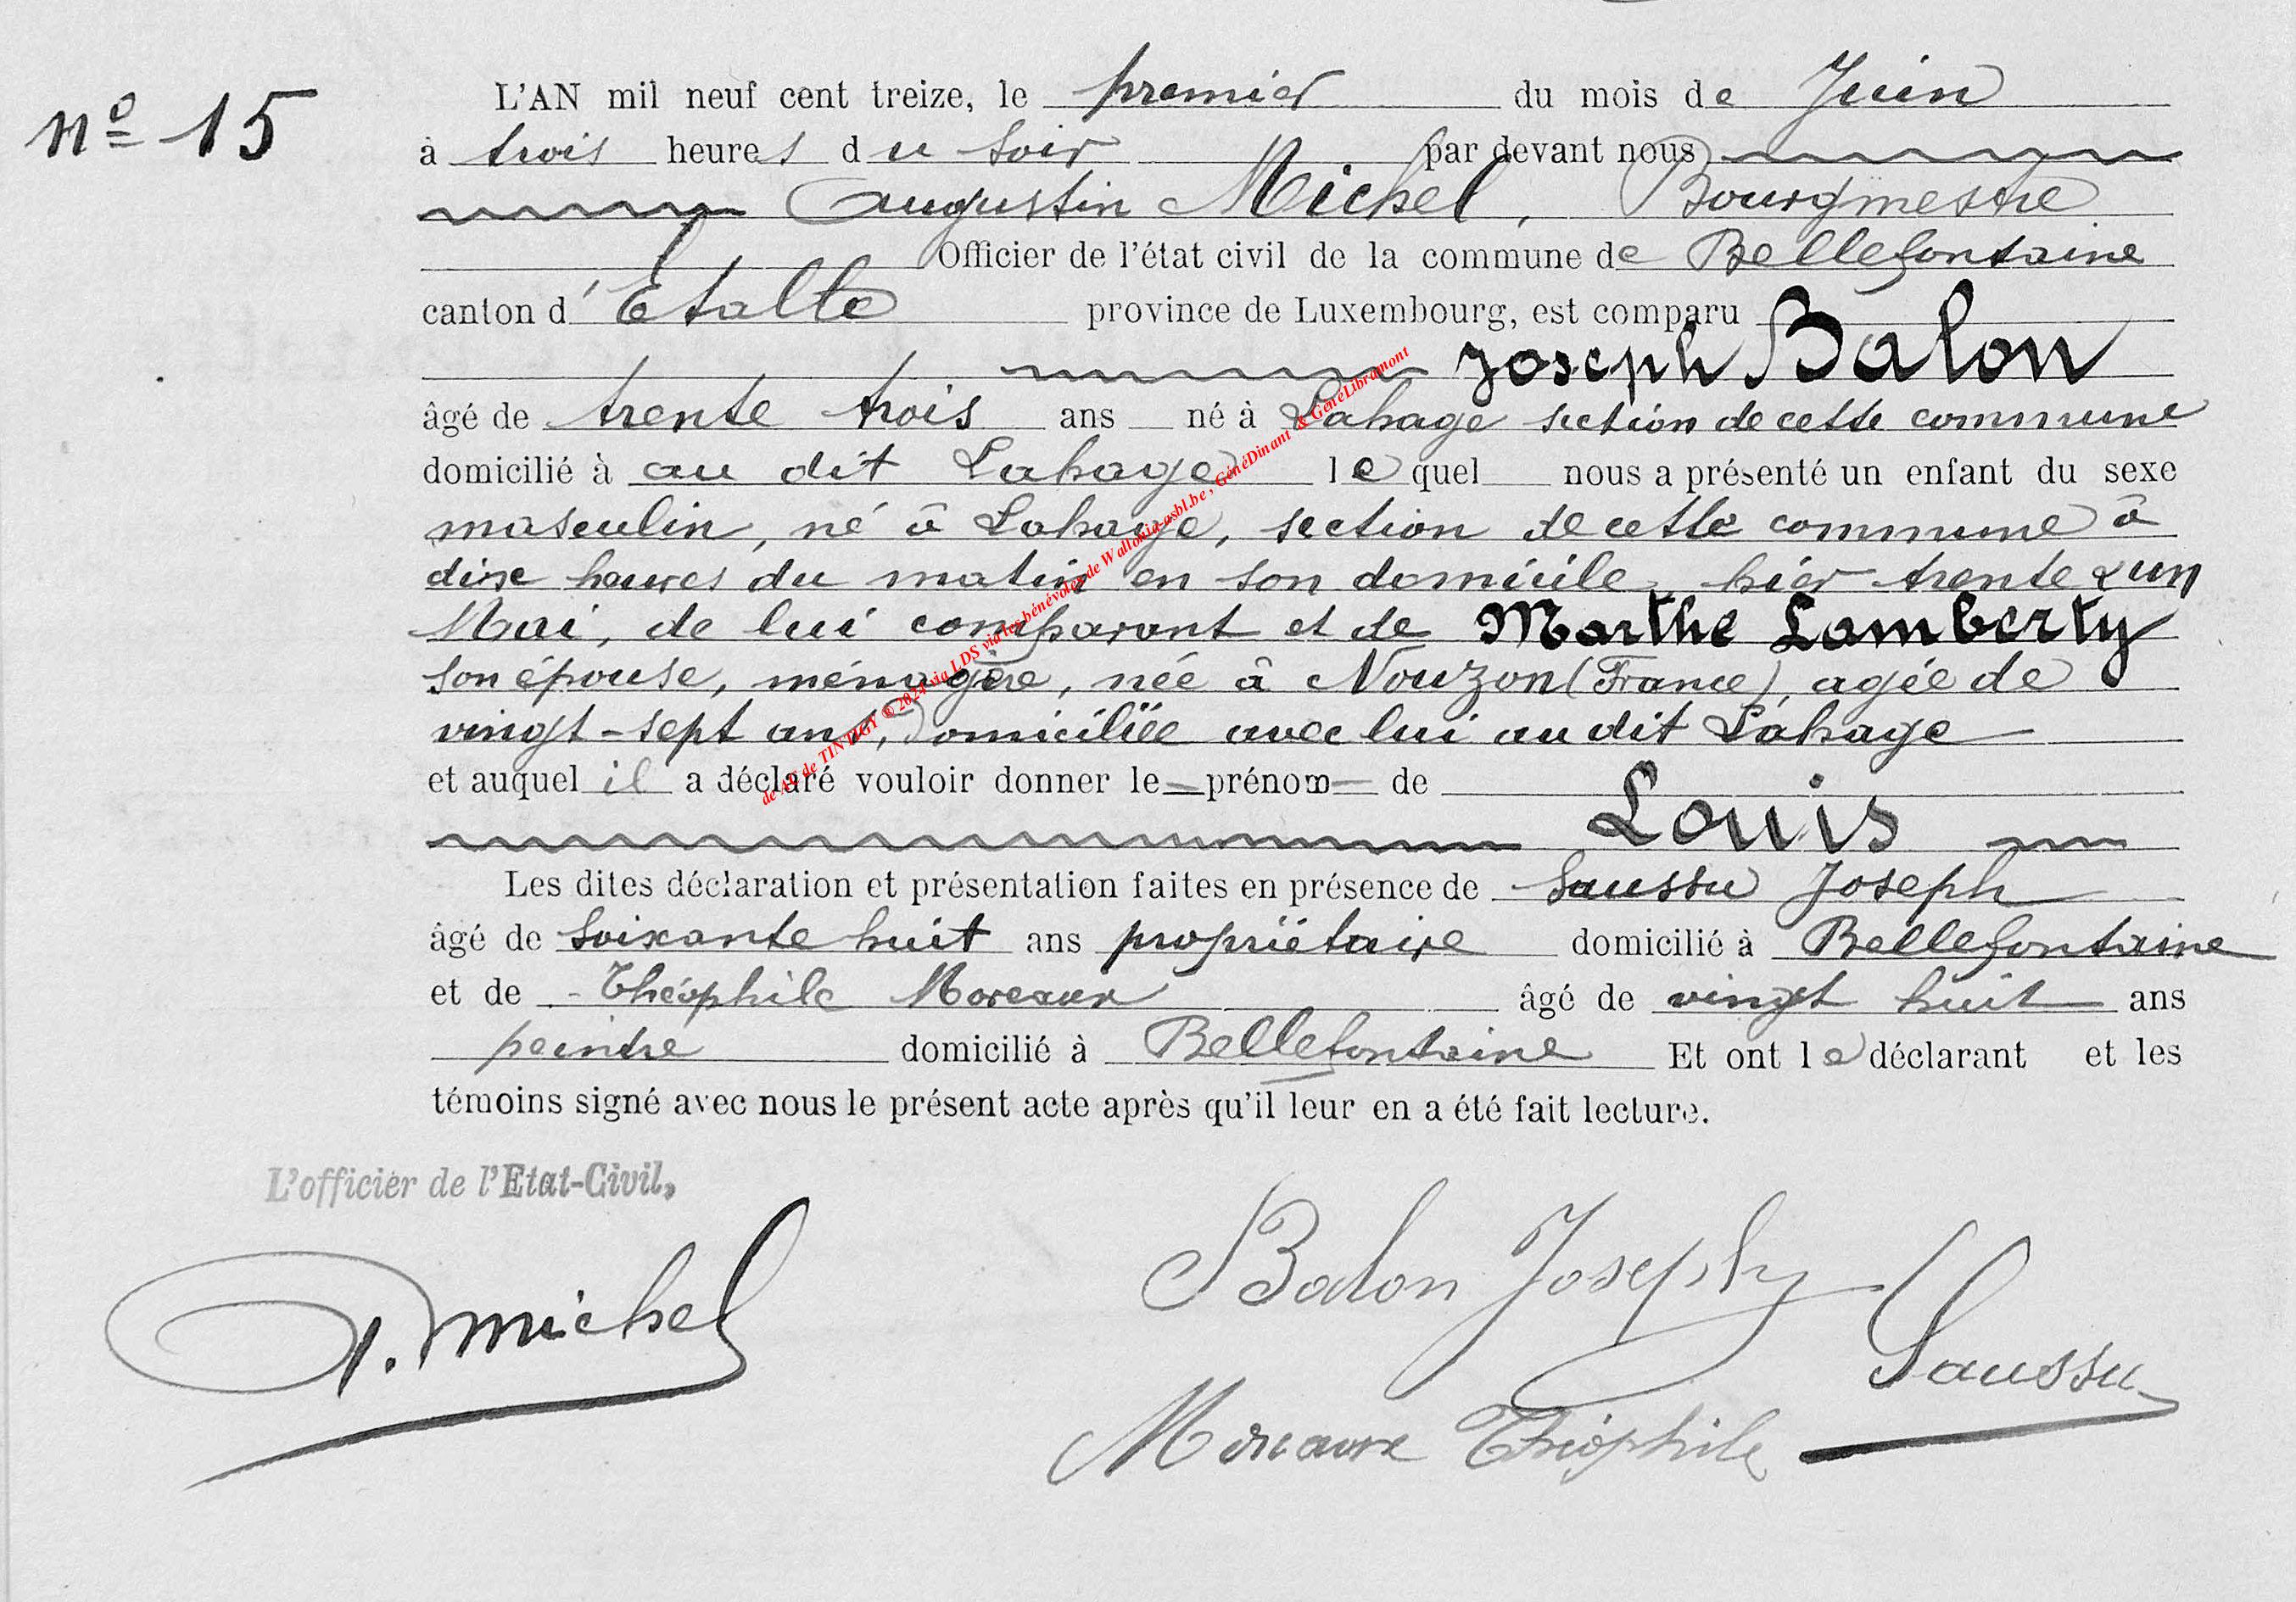 nº 15
L'AN mil neuf cent treize, le premier du mois de Juin
à trois heures du soir par devant nous
Augustin Michel, Bourgmestre
Officier de l'état civil de la commune de Bellefontaine
canton d'Etalle province de Luxembourg, est comparu
Joseph Balon
âgé de trente trois ans né à Lahage section de cette commune
domicilié à au dit Lahage lequel nous a présenté un enfant du sexe
masculin, né à Lahage, section de cette commune à
dixe heures du matin en son domicile, hier trente & un
Mai, de lui comparant et de Marthe Lamberty
son épouse, ménagère, née à Nouzon (France), agée de
vingt-sept ans, Domiciliée avec lui au dit Lahage
et auquel il a déclaré vouloir donner le prénom de
Louis
Les dites déclaration et présentation faites en présence de Saussu Joseph
âgé de soixante huit ans propriétaire domicilié à Bellefontaine
et de Théophile Moreaux âgé de vingt huit ans
peintre domicilié à Bellefontaine Et ont le déclarant et les
témoins signé avec nous le présent acte après qu'il leur en a été fait lecture.
L'officier de l'Etat-Civil,
A. Michel
Balon Joseph
Saussu
Moreaux Théophile
de AE de TINTIGY © 2024 via LDS via les bénévoles de Wallonia-asbl.be, GénéDinant & GénéLibramont